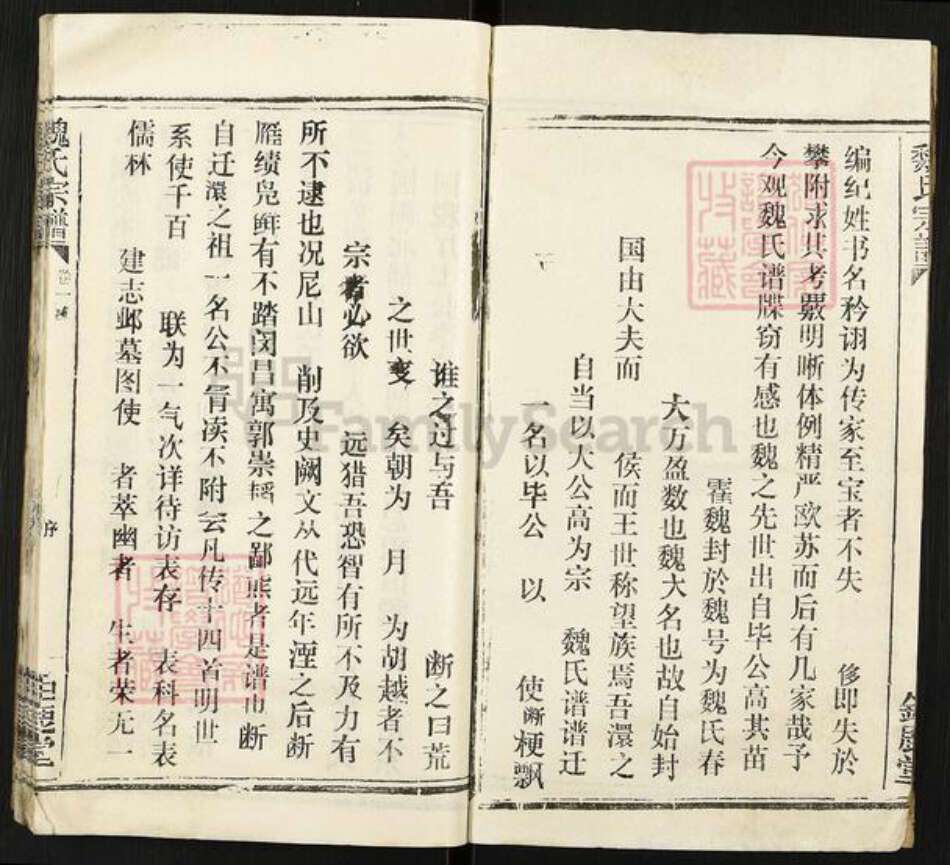 编纪姓书名矜诩为传家至宝者不失 侈即失於
攀附求其考覈明晰体例精严欧苏而后有几家哉予
今观魏氏谱牒窃有感也魏之先世出自毕公高其苗
霍魏封於魏号为魏氏春
大万盈数也魏大名也故自始封
国由大夫而 侯而王世称望族焉吾澴之
自当以大公高为宗 魏氏谱谱迁
一名以毕公 以 使断梗飘
谁之过与吾 断之曰荒
之世变 矣朝为 月 为胡越者不
宗者必欲 远猎吾恐智有所不及力有
所不逮也况尼山 削及史阙文从代远年湮之后断
雁绩凫 有不踏闵昌寓郭崇韬之鄙 者是谱也断
自迁澴之祖一名公不冒渎不附会凡传十四首明世
系使千百 联为一气次详待访表存 表科名表
儒林 建志邺墓图使 者萃幽者 生者荣无一
魏氏宗谱
卷一
序
FamilySearch